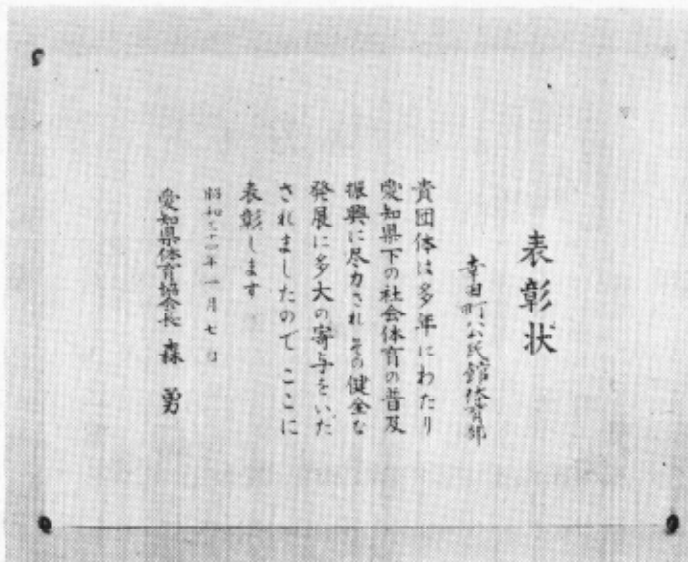 表彰状
幸田町公民館体育部
貴団体は多年にわたり
愛知県下の社会体育の普及
振興に尽力されその健全な
発展に多大の寄与をいた
されましたのでここに
表彰します
昭和三十二年一月七日
愛知県体育協会長 森 勇